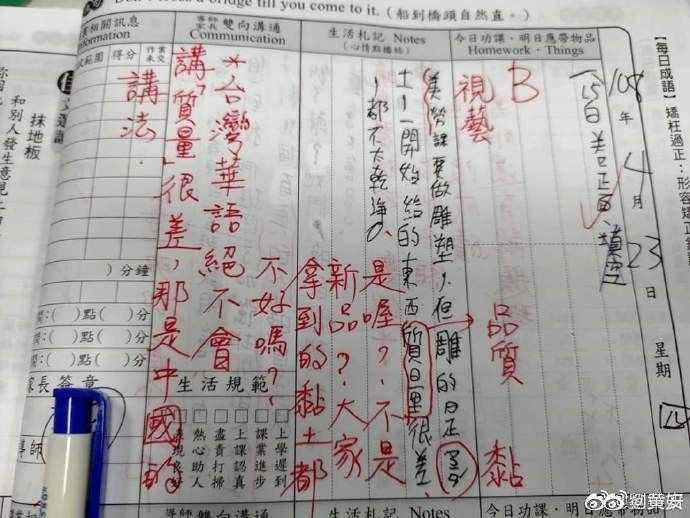 Don't cross a bridge till you come to it.（船到橋頭自然直。）
【每日成語】矯枉過正：形容矯正
108年4月23日 星期二
今日功課‧明日應帶物品
Homework‧Things
生活札記 Notes
（心情點播站）
導師 家長 雙向溝通
Communication
相關訊息
Information
範圍 得分 作業未交
B
視藝
美勞課要做雕塑，但雕的
土一開始給的東西質量很差
，都不太乾淨。
品質
黏
是喔？不是
新品？大家
拿到的黏土都
不好嗎？
*台灣華語絕不會
講「質量」很差，那是中國的
講法。
）分鐘
（ ）點（ ）分
（ ）點（ ）分
（ ）點（ ）分
家長簽章
導師
生活規範
上學遲到
課業進步
上課認真
盡責打掃
熱心助人
表現良好
和別人發生意見
抹地板
導師 家長 雙向溝通
生活札記 Notes
今日功課‧明日應帶物品
@劉黃安